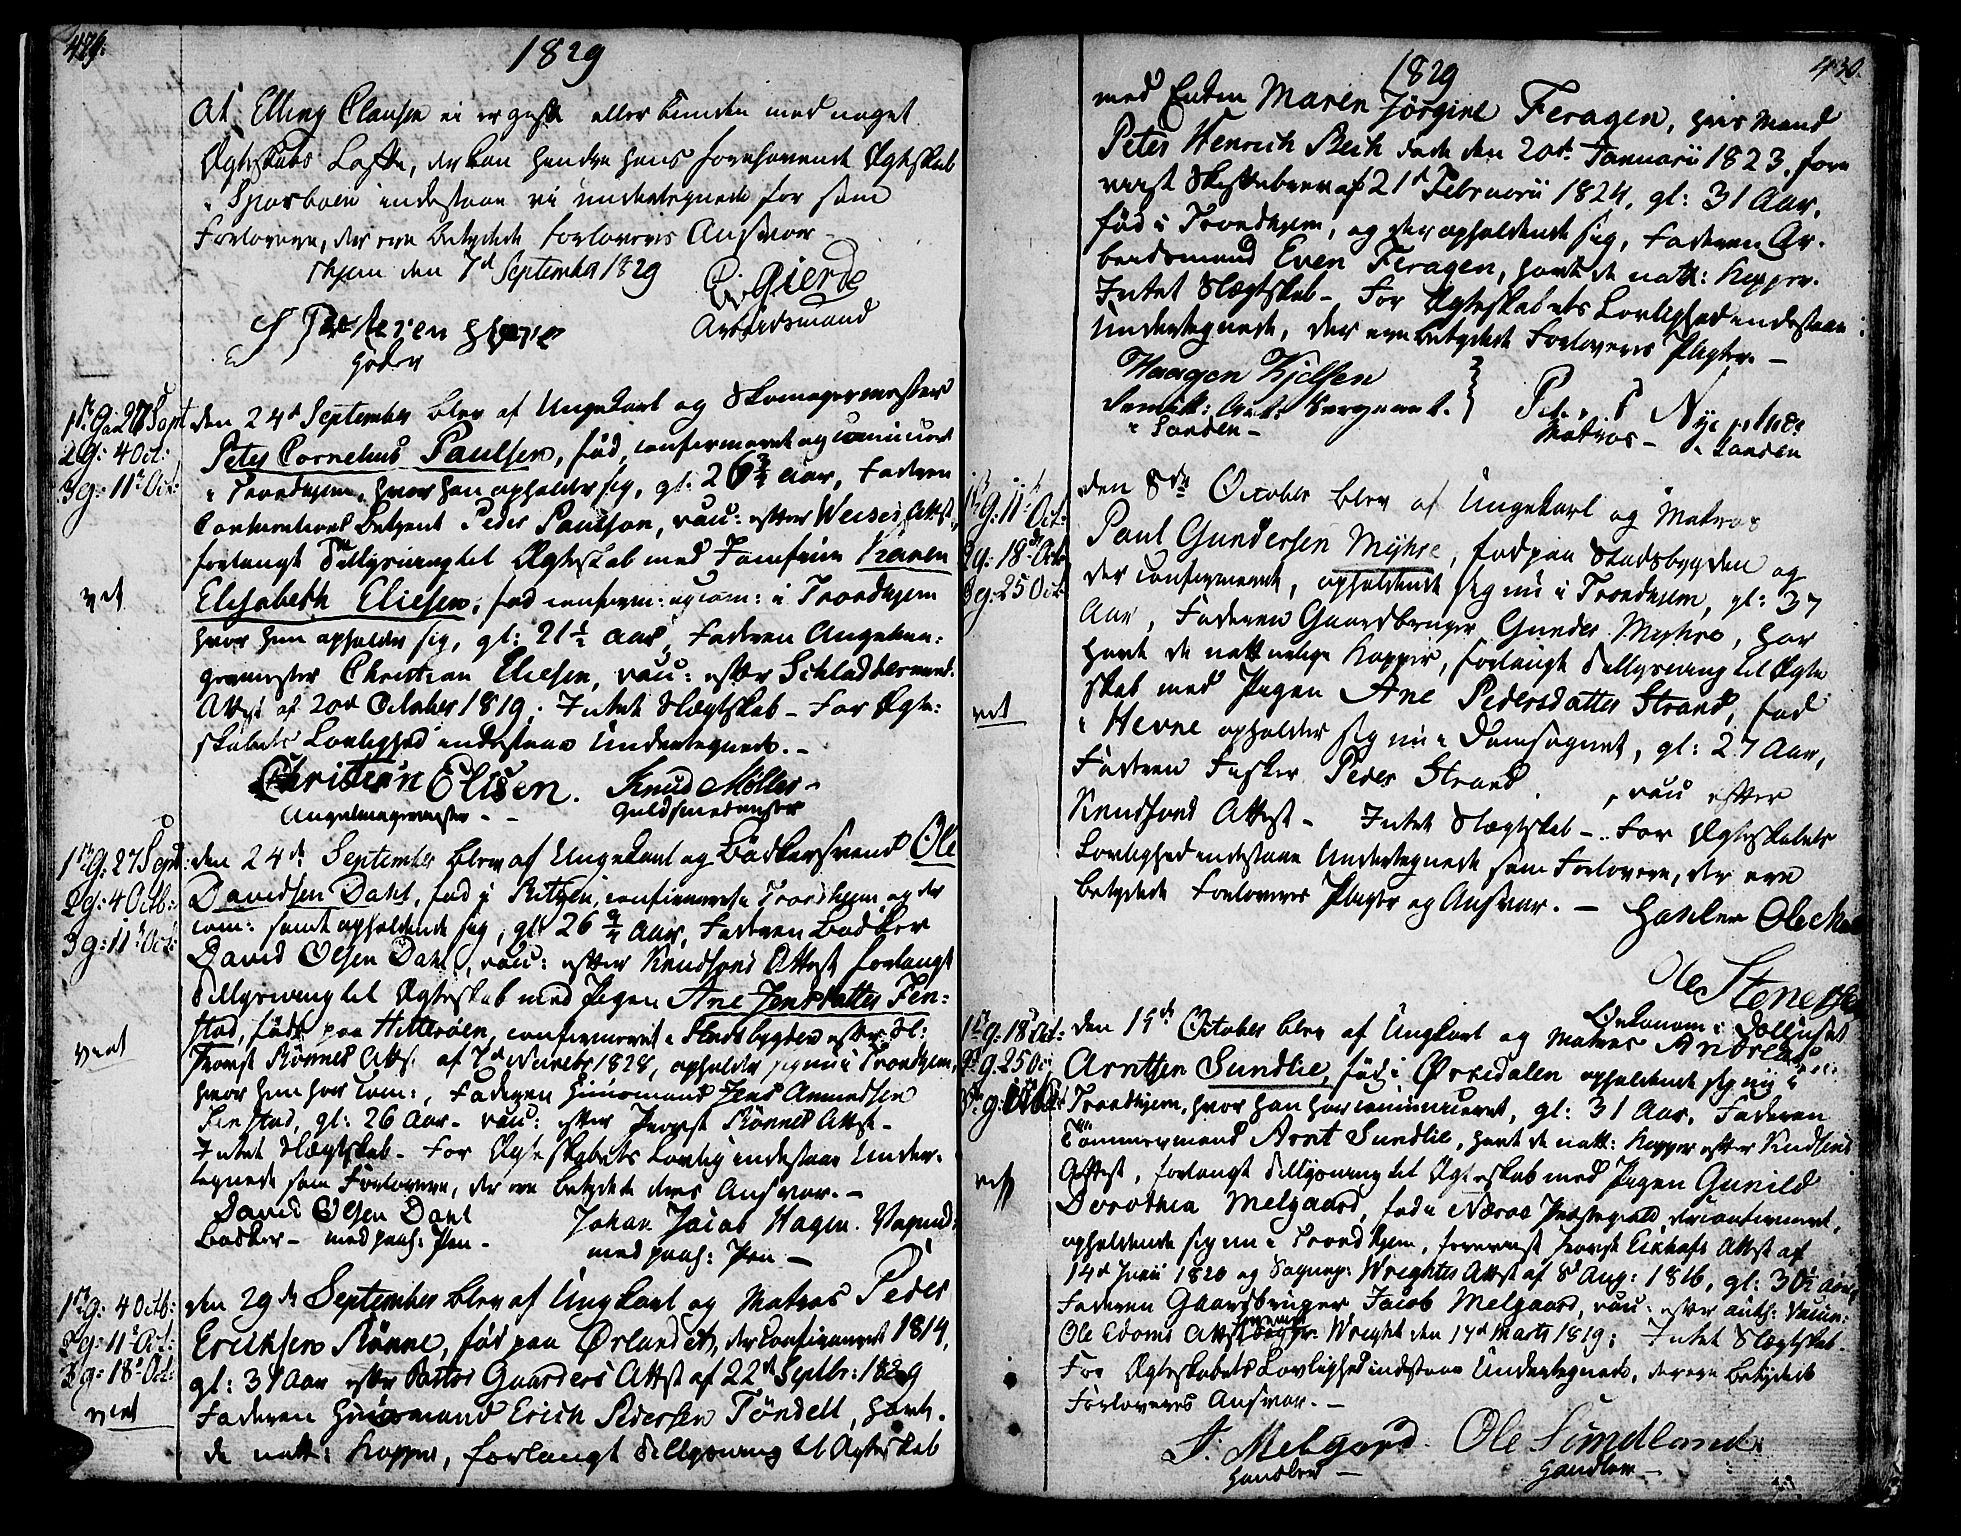 429.
1829
At Elling Clausen ei er gift eller bunden med noget
Ægteskabs Løfte, der kan hindre hans forehavende Ægteskab
i Sparboen indestaae vi undertegnede for som
Forlovere, der ere betydede Forloveres Ansvar
Thjem den 7d September 1829
Gierde
Arbeidsmand
1ste G: 27 Sept
2 g: 4 Oct:
3 g: 11te Oct:
viet
den 24d September blev af Ungekarl og Skomagermester
Peter Cornelius Paulsen, fød, confirmeret og comuniceret
i Trondhjem, hvor han opholder sig, gl: 26 3/4 Aar, Faderen
Peder Paulson, vacc: efter Weises Attst:
forlangt Tillysning til Ægteskab med Jomfrue Karen
Elisabeth Eliesen, fød confirm: og com: i Trondhjem
hvor hun opholder sig, gl: 21 1/2 Aar, Faderen Angelma:
germester Christian Eliesen, vacc: efter
Attst af 20d October 1819. Intet Slægtskab - For Ægte:
skabets Lovlighed indestaae Undertegnede. -
Christian Elisen. Knud Møller -
Angelmagermester - Guldsmedmester
1ste G: 27 Sept:
2 g: 4 Octb:
3 g: 11te Oct:
viet
den 24de September blev af Ungekarl og Bødkersvend Ole
Davidsen Dahl, fød i Ritzen, confirmeret i Trondhjem og der
com: samt opholdende sig, gl: 26 3/4 Aar, Faderen Bødker
David Olsen Dahl, vacc: efter Knudsons Attest forlangt
Tillysning til Ægteskab med Pigen Ane Jensdatter Fin:
stad, født paa Hitterøen, confirmeret i Stadsbygden efter Hl:
Provst Rønnes Attst: af 7d 1828, opholder sig nu i Trondhjem,
hvor hun har com:, Faderen Huusmand Jens Amundsen
Finstad, gl: 26 Aar - vacc: efter Provst Rønnes Attst -
Intet Slægtskab - For Ægteskabets Lovlig indestaae Under:
tegnede som Forlovere, der ere betydede deres Ansvar. -
David Olsen Dahl Johan Jacob Hagen.
Bødker - med paah: Pen - med paah: Pen -
1ste g: 4 Octb:
2 g: 11te Oct:
3 g: 18de Oct:
viet
den 29de September blev af Ungkarl og Matros Peder
Erichsen Rønne, fød paa Ørlandet, der confirmeret 1814,
gl: 31 Aar efter Pastor Gaarders Attst af 22de Septbr: 1829
Faderen Huusmand Erich Pedersen Tøndell, havt
de natt: Kopper, forlangt Tillysning til Ægteskab
430.
1829
med Enken Maren Jørgine Feragen, hvis Mand
Peter Henrich Beck døde den 20de Januarii 1823, fore
viist Skiftebrev af 21d Februarii 1824, gl: 31 Aar,
fød i Trondhjem, og der opholdende sig, Faderen Ar-
beidsmand Even Feragen, havt de natt: Kopper.
Intet Slægtskab - For Ægteskabets Lovlighed indestaae
Undertegnede, der ere betydede Forloveres Pligter. -
Haagen Kjelsen
Sergeant.
i Sanden - Matros - i Sanden
1ste G: 11te Oct:
2 g: 18de Oct
3 g: 25 Oct
viet
den 8de October blev af Ungekarl og Matros
Paul Gundersen Myhre, fød paa Stadsbygden og
der confirmeret, opholdende sig nu i Trondhjem, gl: 37
Aar, Faderen Gaardbruger Gunder Myhre, har
havt de naturlige Kopper, forlangt Tillysning til Ægte
skab med Pigen Ane Pedersdatter Strand, fød
i Hevne opholder sig nu i Domsognet, gl: 27 Aar,
Faderen Fisker Peder Strand, vacc efter
Knudsons Attest - Intet Slægtskab - For Ægteskabets
Lovlighed indestaae Undertegnede som Forlovere, der ere
betydede Forloveres Pligter og Ansvar. -
Handler Ole
Ole
1ste g: 18de Oct:
2 g: 25 Oct
viet
den 15de October blev af Ungkarl og Matros Andreas
Arntsen Sundlie, fød i Ørkedalen opholdende sig nu i
Trondhjem, hvor han har communiceret, gl: 31 Aar. Faderen
Tømmermand Arnt Sundlie, havt de natt: Kopper efter Knudsens
Attest, forlangt Tillysning til Ægteskab med Pigen Gunild
Dorothea Melgaard, fød i Næroe Præstegield, der confirmeret,
opholdende sig nu i Trondhjem, foreviist Provst Attst af
14d Junii 1820 og Sognepr: Wrights Attst af 8d Aug: 1816, gl: 30 1/2 Aar,
Faderen Gaardbruger Jacob Melgaard, vacc: efter auth: Vaccin:
Ole Edoms Attst Wright den 17d Marts 1819; Intet Slægtskab -
For Ægteskabets Lovlighed indestaae Undertegnede, der ere betydede
Forloveres Ansvar. -
J: Melgard. Ole Sundland
Handler - Handler -